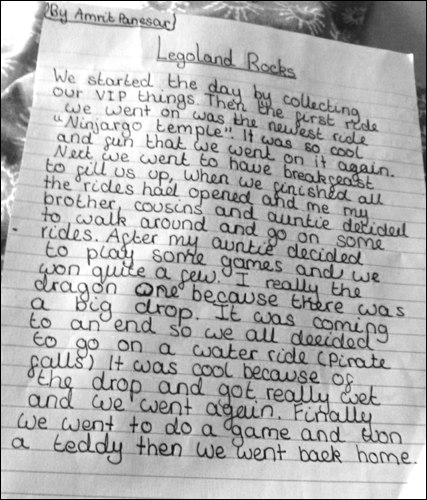 (By Amrit Panesar)
Legoland Rocks
We started the day by collecting
our VIP things. Then the first ride
we went on was the newest ride
"Ninjargo temple". It was so cool
and fun that we went on it again.
Next we went to have breakfast
to fill us up, when we finished all
the rides had opened and me my
brother, cousins and auntie detided
to walk around and go on some
rides. After my auntie decided
to play some games and we
won quite a few. I really the
dragon one because there was
a big drop. It was coming
to an end so we all decided
to go on a water ride (Pirate
falls) It was cool because of
the drop and got really wet
and we went again. Finally
we went to do a game and won
a teddy then we went back home.